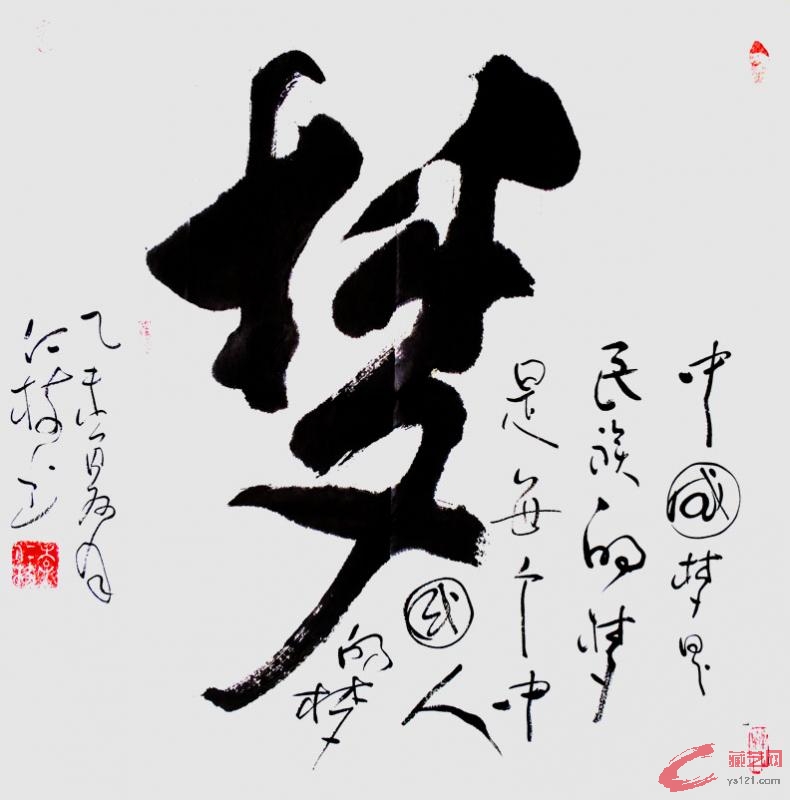 梦
中國梦是
民族的梦
是每个中
國人
的梦
乙未
藏艺网
ys121.com